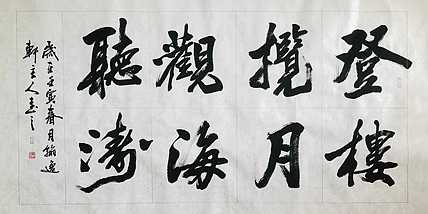 登樓
攬月
觀海
聽濤
歲在壬寅春月翰逸
軒主人